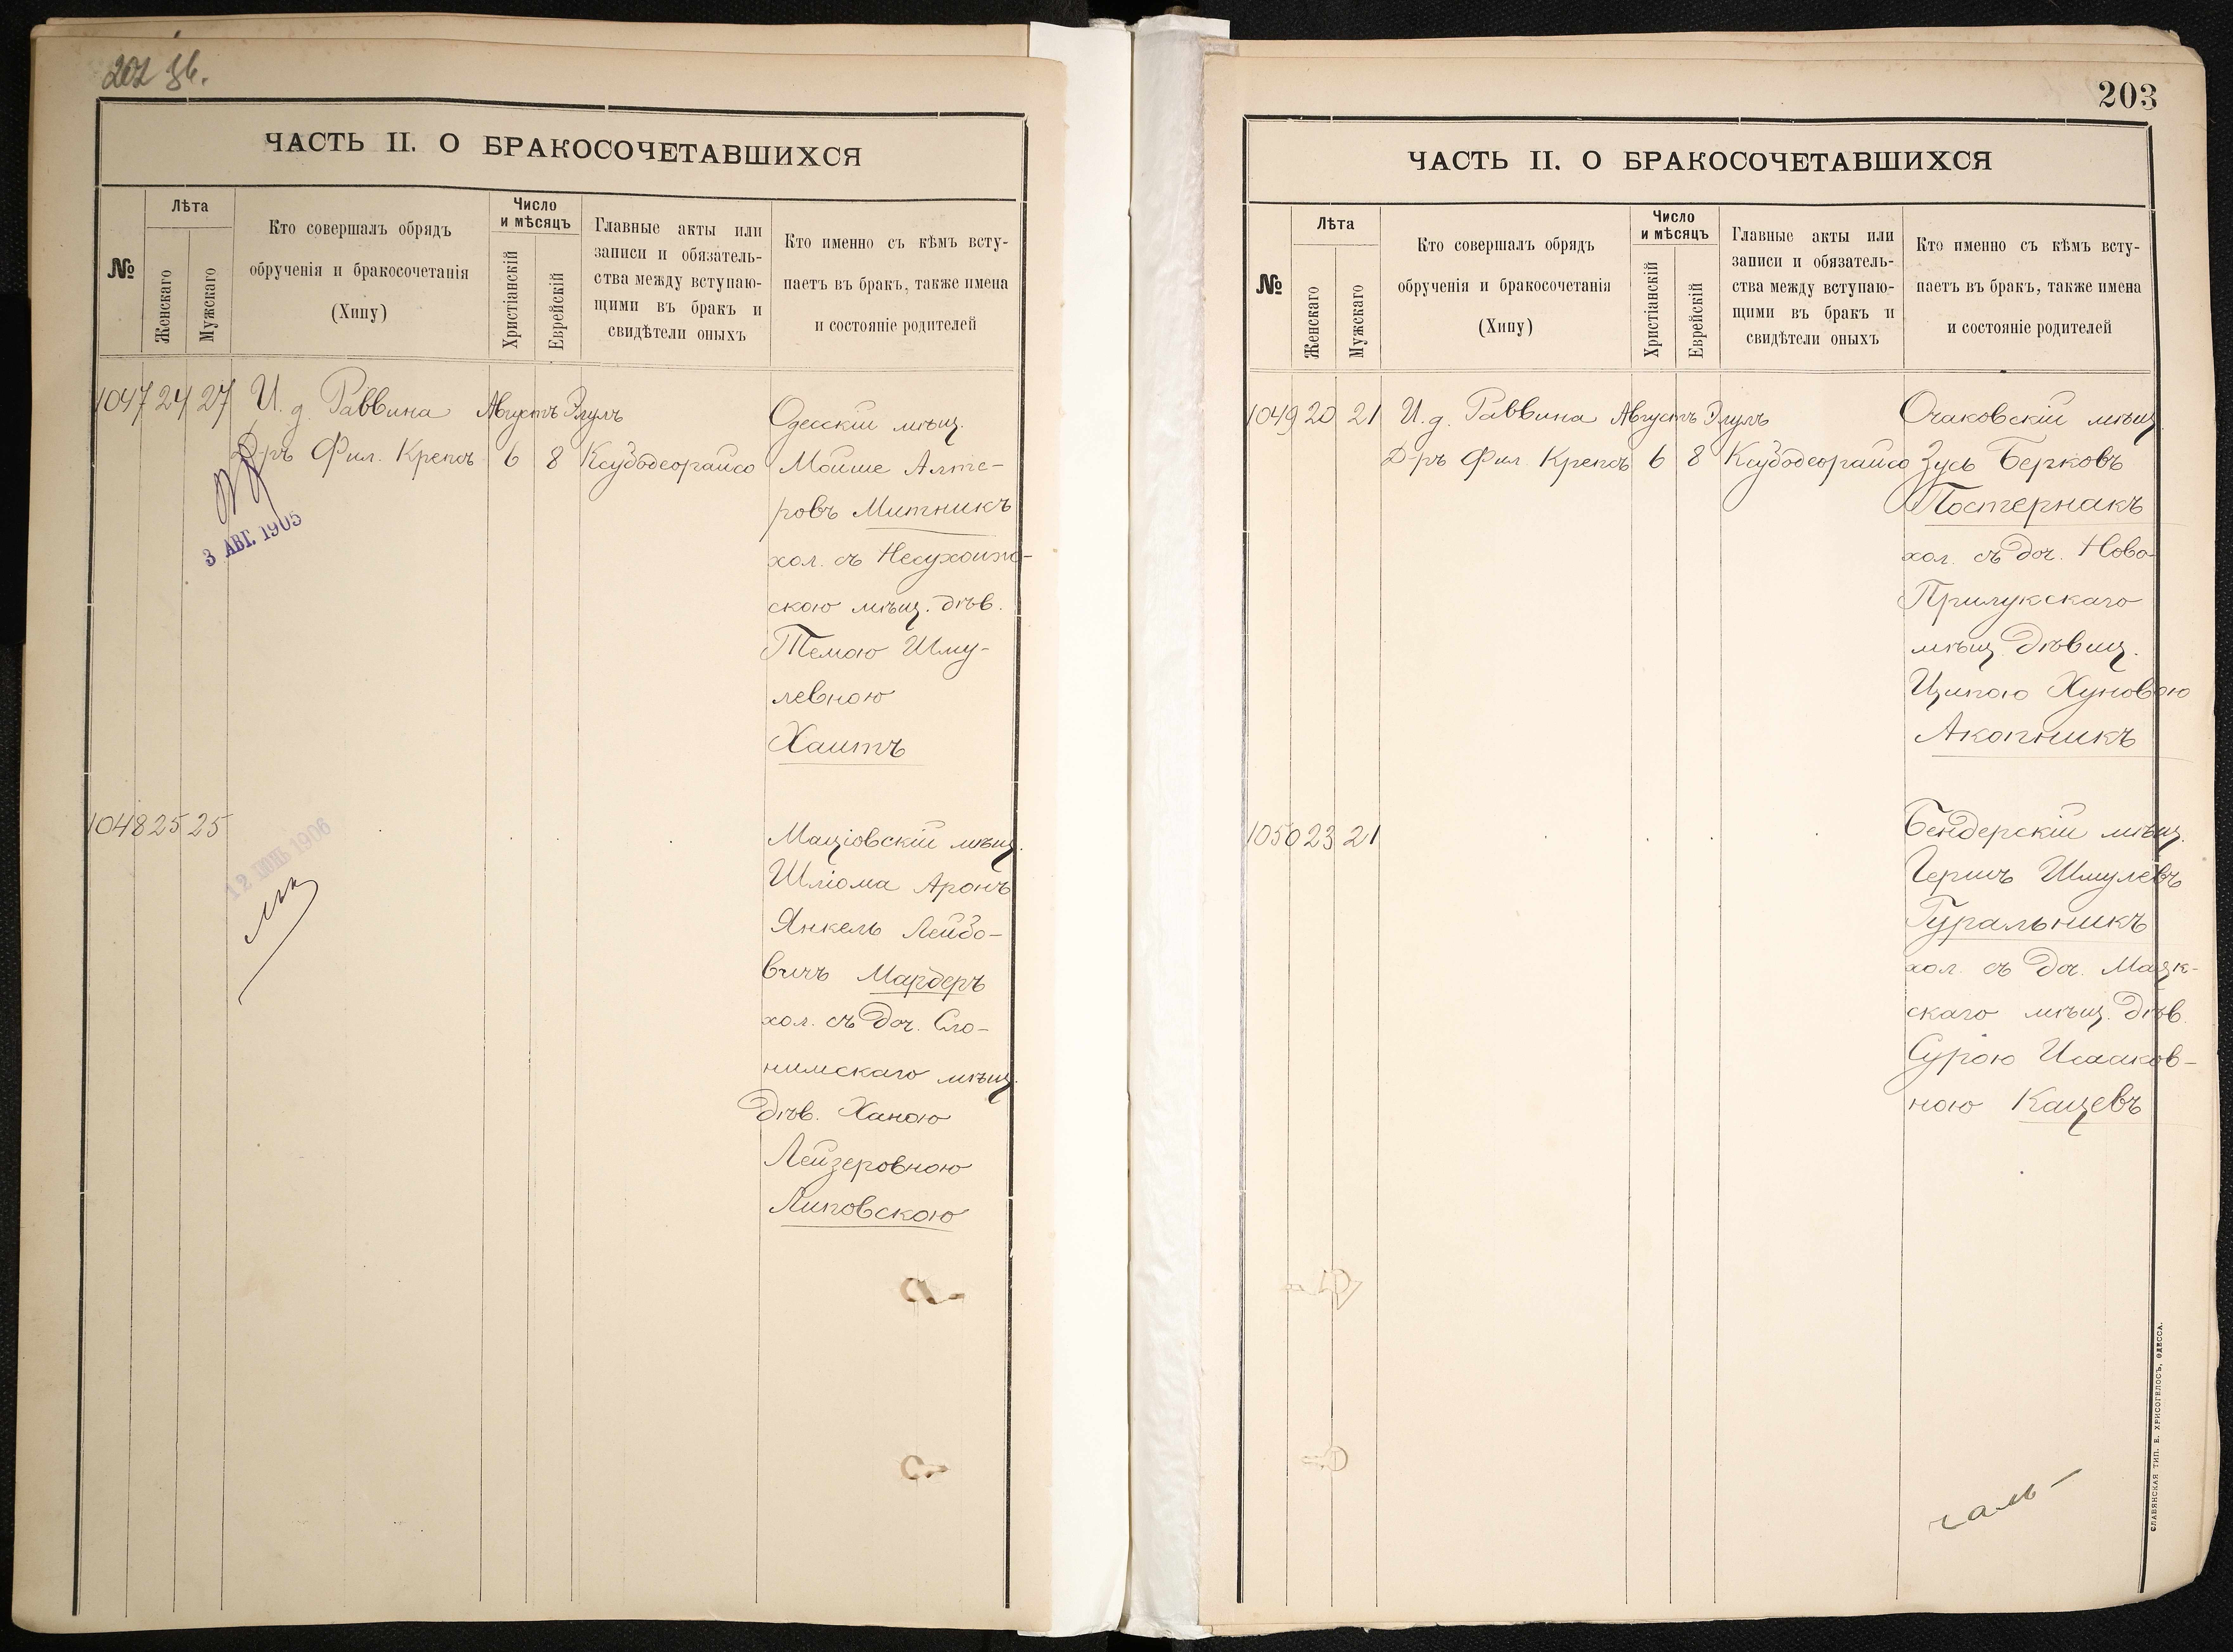 202 зв.
ЧАСТЬ II. О БРАКОСОЧЕТАВШИХСЯ
№
Лѣта
Женскаго
Мужскаго
Кто совершалъ обрядъ
обрученія и бракосочетанія
(Хипу)
Число
и мѣсяцъ
Христіанскій
Еврейскій
Главные акты или
записи и обязатель-
ства между вступаю-
щими въ бракъ и
свидѣтели оныхъ
Кто именно съ кѣмъ всту-
паетъ въ бракъ, также имена
и состояніе родителей
1047 24 27 И. д. Раввина Августъ Элулъ
Д-ръ Фил. Крепсъ 6 8 Ксубодеорайсо
Одесскій мѣщ.
Мойше Алте-
ровъ Митникъ
хол. съ Несухоиж-
скою мѣщ. дѣв.
Темою Шму-
левною
Хаитъ
3 АВГ. 1905
1048 25 25
12 ІЮНЬ 1906
Маціовскій мѣщ.
Шліома Аронъ
Янкель Лейбо-
вичъ Мардеръ
хол. съ доч. Сло-
нимскаго мѣщ.
дѣв. Ханою
Лейзеровною
Липовскою
203
ЧАСТЬ II. О БРАКОСОЧЕТАВШИХСЯ
№
Лѣта
Женскаго
Мужскаго
Кто совершалъ обрядъ
обрученія и бракосочетанія
(Хипу)
Число
и мѣсяцъ
Христіанскій
Еврейскій
Главные акты или
записи и обязатель-
ства между вступаю-
щими въ бракъ и
свидѣтели оныхъ
Кто именно съ кѣмъ всту-
паетъ въ бракъ, также имена
и состояніе родителей
1049 20 21 И. д. Раввина Августъ Элулъ
Д-ръ Фил. Крепсъ 6 8 Ксубодеорайсо
Очаковскій мѣщ.
Зусь Берковъ
Постернакъ
хол. съ доч. Ново-
Прилукскаго
мѣщ. дѣвиц.
Ципою Хуновою
Акопникъ
1050 23 21
Бендерскій мѣщ.
Гершъ Шмулевъ
Гуральникъ
хол. съ доч. Мацк-
скаго мѣщ. дѣв.
Сурою Исааков-
ною Кацевъ
СЛАВЯНСКАЯ ТИП. Е. ХРИСОГЕЛОСЪ, ОДЕССА.